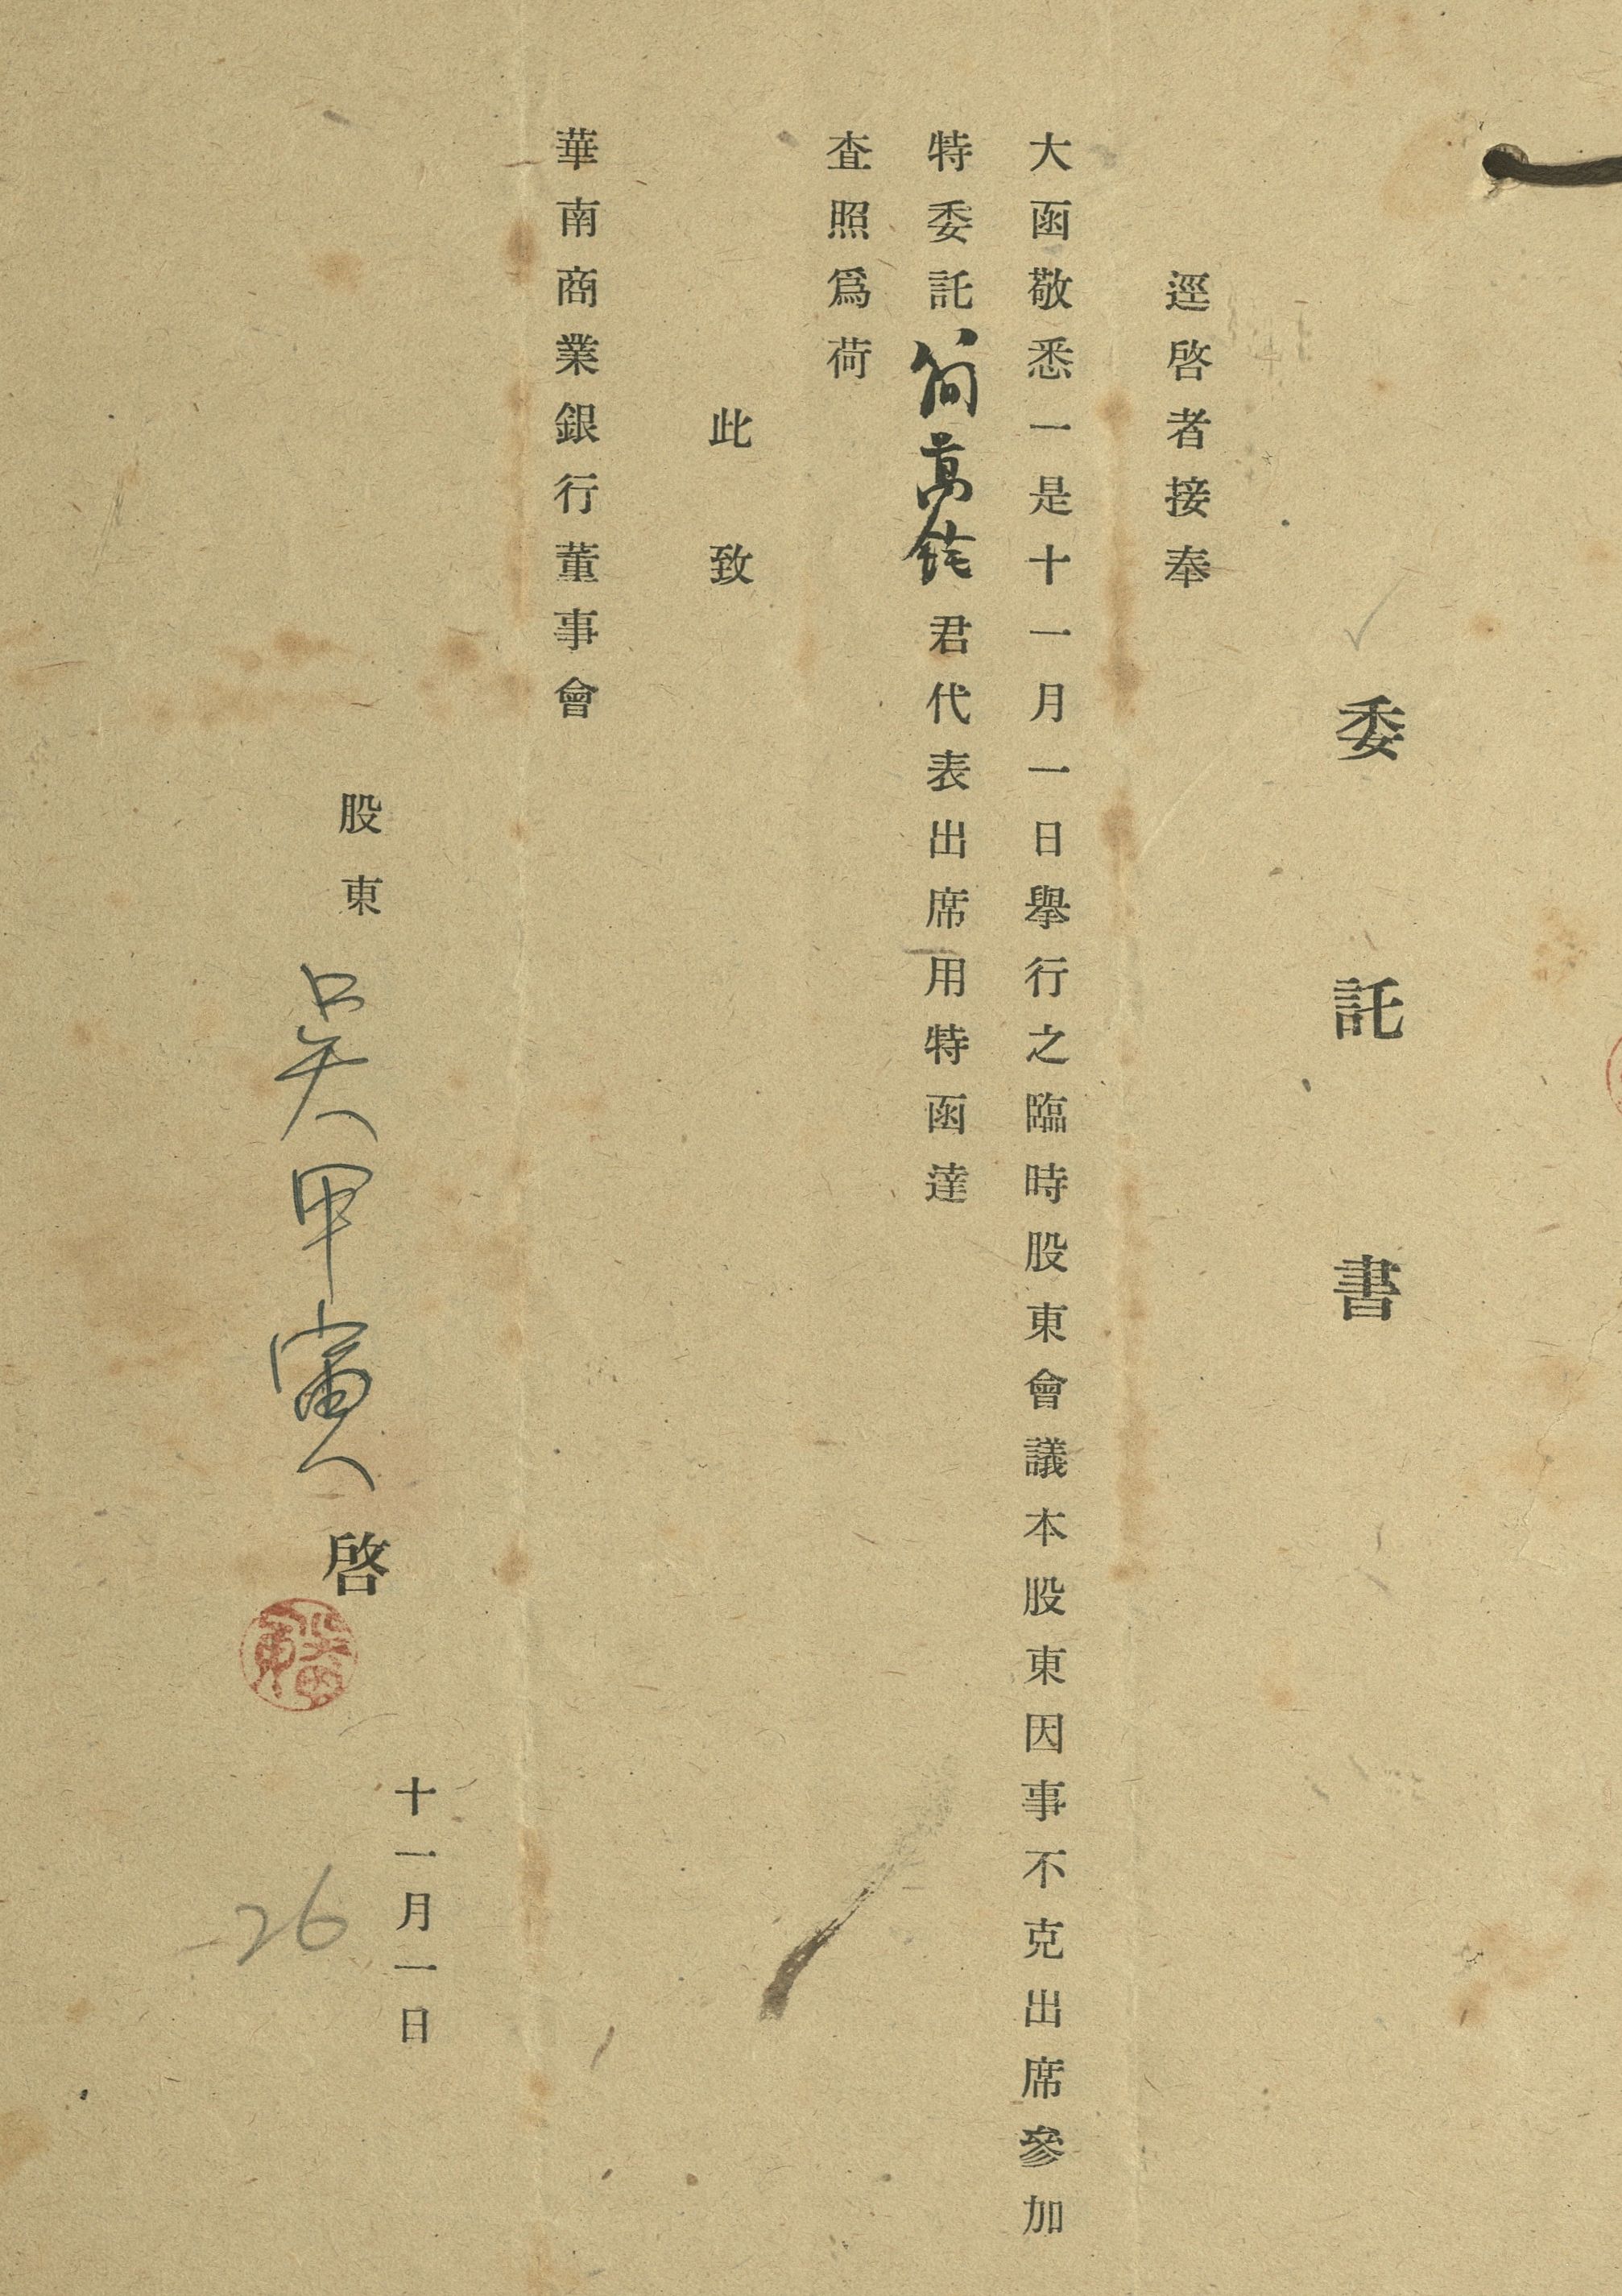 委託書
逕啓者接奉
大函敬悉一是十一月一日舉行之臨時股東會議本股東因事不克出席參加
特委託簡萬銓君代表出席用特函達
査照爲荷
此致
華南商業銀行董事會
十一月一日
股東 吳甲寅 啓
26